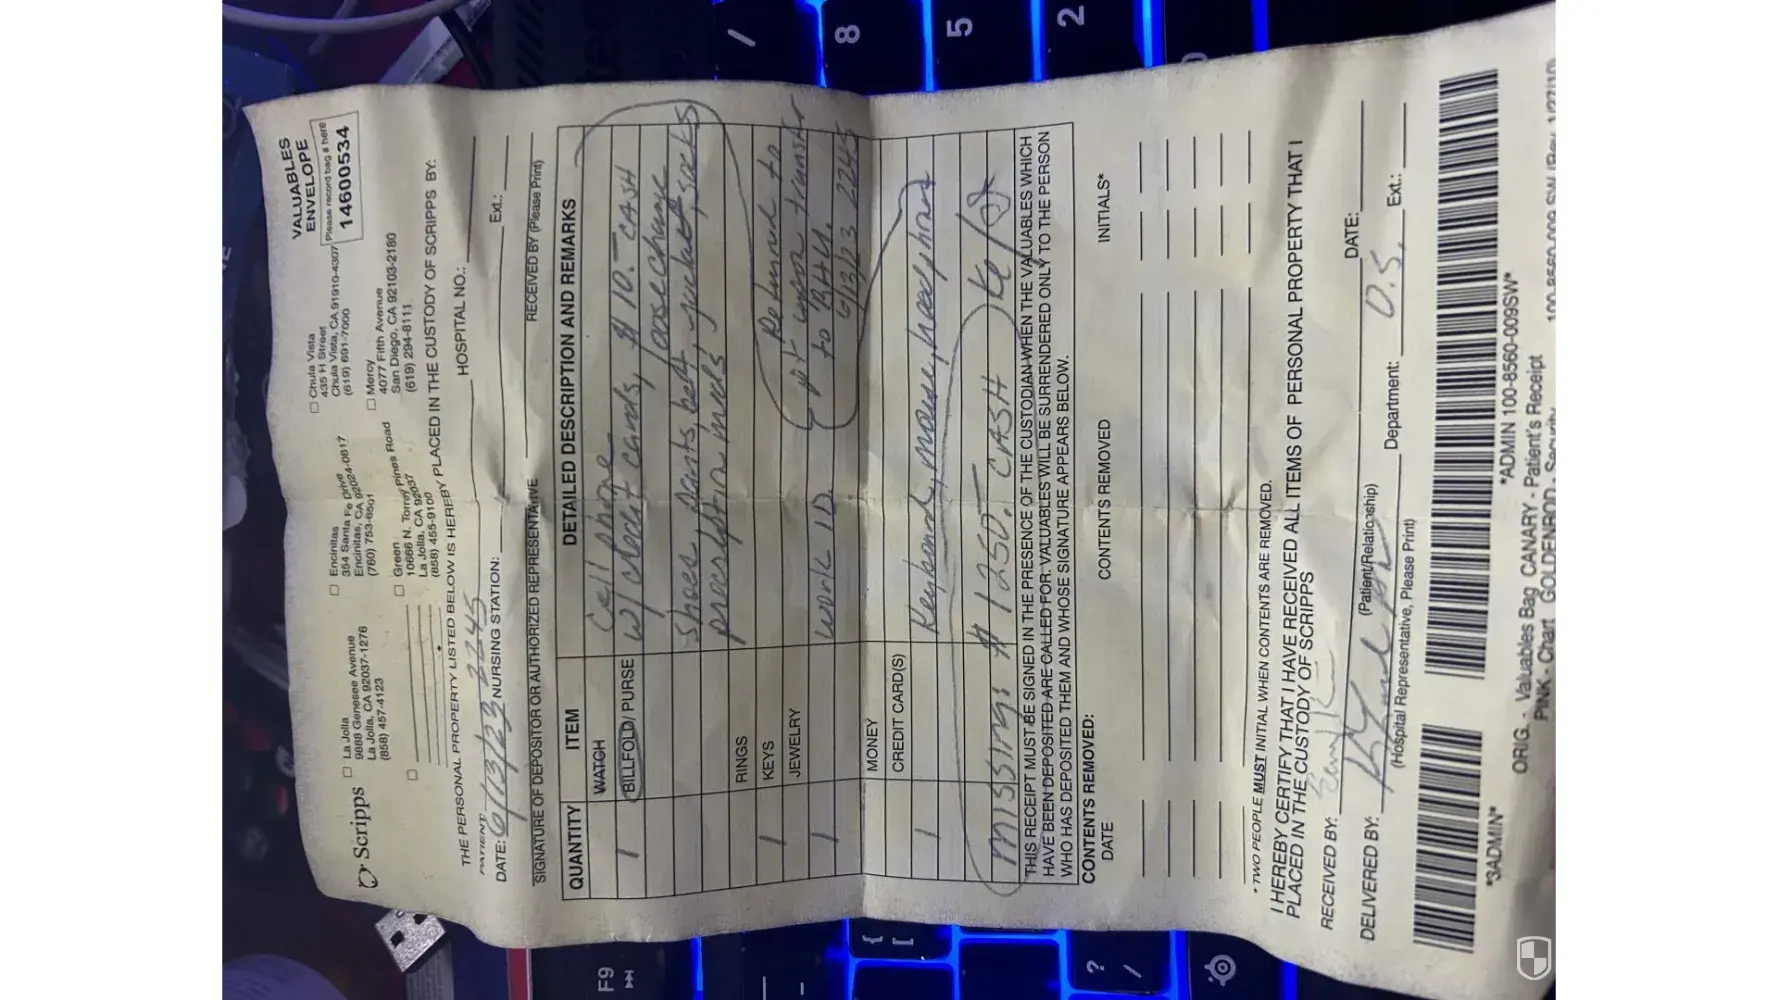 Scripps
VALUABLES
ENVELOPE
Please record bag # here
14600534
☐ La Jolla
9888 Genesee Avenue
La Jolla, CA 92037-1276
(858) 457-4123
☐ Encinitas
354 Santa Fe Drive
Encinitas, CA 92024-0817
(760) 753-6501
☐ Chula Vista
435 H Street
Chula Vista, CA 91910-4307
(619) 691-7000
☐ Green
10666 N. Torrey Pines Road
La Jolla, CA 92037
(858) 455-9100
☐ Mercy
4077 Fifth Avenue
San Diego, CA 92103-2180
(619) 294-8111
THE PERSONAL PROPERTY LISTED BELOW IS HEREBY PLACED IN THE CUSTODY OF SCRIPPS BY:
PATIENT: HOSPITAL NO.:
DATE: 6/13/23 2245 NURSING STATION: Ext.:
SIGNATURE OF DEPOSITOR OR AUTHORIZED REPRESENTATIVE RECEIVED BY (Please Print)
QUANTITY ITEM DETAILED DESCRIPTION AND REMARKS
WATCH Cell phone
1 BILLFOLD/ PURSE w/ credit cards, $10.- CASH
loose change
shoes, pants, belt, jacket, socks
prescription meds
RINGS
1 KEYS Returned to
JEWELRY pt upon transfer
1 work ID to BHU.
6/13/23 2245
MONEY
CREDIT CARD(S)
1 Keyboard, mouse, headphones
missing: $1250.- CASH
THIS RECEIPT MUST BE SIGNED IN THE PRESENCE OF THE CUSTODIAN WHEN THE VALUABLES WHICH
HAVE BEEN DEPOSITED ARE CALLED FOR. VALUABLES WILL BE SURRENDERED ONLY TO THE PERSON
WHO HAS DEPOSITED THEM AND WHOSE SIGNATURE APPEARS BELOW.
CONTENTS REMOVED:
DATE CONTENTS REMOVED INITIALS*
* TWO PEOPLE MUST INITIAL WHEN CONTENTS ARE REMOVED.
I HEREBY CERTIFY THAT I HAVE RECEIVED ALL ITEMS OF PERSONAL PROPERTY THAT I
PLACED IN THE CUSTODY OF SCRIPPS
RECEIVED BY: DATE:
(Patient/Relationship)
DELIVERED BY: Department: O.S. Ext.:
(Hospital Representative, Please Print)
*3ADMIN* *ADMIN 100-8560-009SW*
ORIG. - Valuables Bag CANARY - Patient's Receipt
PINK - Chart GOLDENROD - Security
100-8560-009 SW (Rev. 1/27/10)
/ 8 5 2
F9
{ [
? /